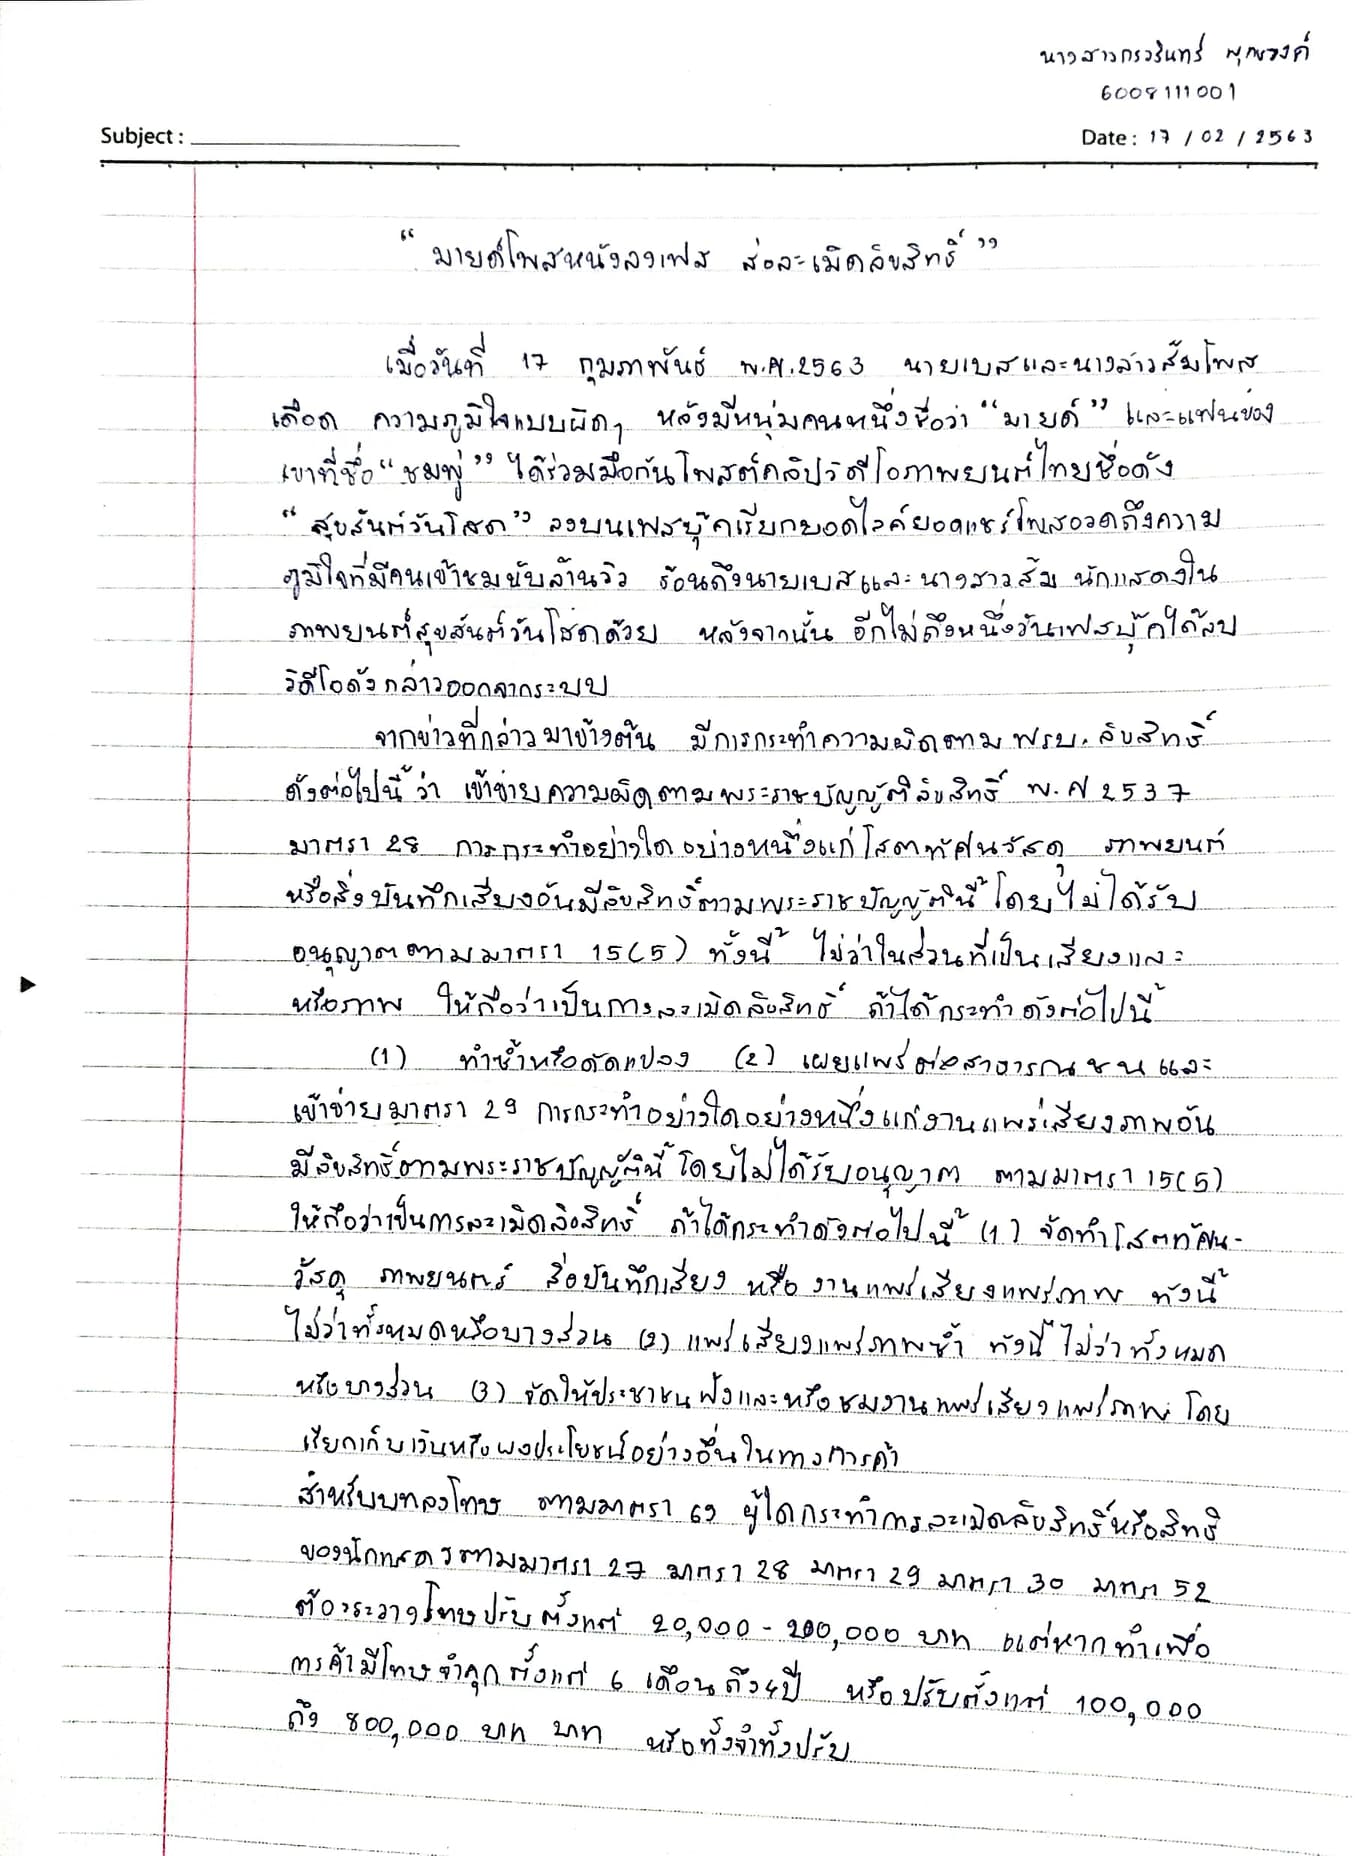 นางสาวกรวรินทร์
6008111001
Subject :
Date : 17 / 02 / 2563
“ มายด์โพสหนังลงเฟส ส่อละเมิดลิขสิทธิ์ ”
เมื่อวันที่ 17 กุมภาพันธ์ พ.ศ.2563 นายเบสและนางสาวส้มโพส
เดือด ความภูมิใจแบบผิดๆ หลังมีหนุ่มคนหนึ่งชื่อว่า “มายด์” และแฟนของ
เขาที่ชื่อ “ชมพู่” ได้ร่วมมือกันโพสต์คลิปวิดีโอภาพยนต์ไทยชื่อดัง
“สุขสันต์วันโสด” ลงบนเฟสบุ๊คเรียกยอดไลค์ยอดแชร์โพสอวดถึงความ
ภูมิใจที่มีคนเข้าชมนับล้านวิว ร้อนถึงนายเบสและนางสาวส้ม นักแสดงใน
ภาพยนต์สุขสันต์วันโสดด้วย หลังจากนั้น อีกไม่ถึงหนึ่งวันเฟสบุ๊คได้ลบ
วิดีโอดังกล่าวออกจากระบบ
จากข่าวที่กล่าวมาข้างต้น มีการกระทำความผิดตามพรบ.ลิขสิทธิ์
ดังต่อไปนี้ ว่า เข้าข่ายความผิดตามพระราชบัญญัติลิขสิทธิ์ พ.ศ 2537
มาตรา 28 การกระทำอย่างใดอย่างหนึ่งแก่โสตทัศนวัสดุ ภาพยนต์
หรือสิ่งบันทึกเสียงอันมีลิขสิทธิ์ตามพระราชบัญญัตินี้ โดยไม่ได้รับ
อนุญาตตามมาตรา 15(5) ทั้งนี้ ไม่ว่าในส่วนที่เป็นเสียงและ
หรือภาพ ให้ถือว่าเป็นการละเมิดลิขสิทธิ์ ถ้าได้กระทำดังต่อไปนี้
(1) ทำซ้ำหรือดัดแปลง (2) เผยแพร่ต่อสาธารณชนและ
เข้าข่ายมาตรา 29 การกระทำอย่างใดอย่างหนึ่งแก่งานแพร่เสียงภาพอัน
มีลิขสิทธิ์ตามพระราชบัญญัตินี้ โดยไม่ได้รับอนุญาต ตามมาตรา 15(5)
ให้ถือว่าเป็นการละเมิดลิขสิทธิ์ ถ้าได้กระทำดังต่อไปนี้ (1) จัดทำโสตทัศน-
วัสดุ ภาพยนตร์ สิ่งบันทึกเสียง หรืองานแพร่เสียงแพร่ภาพ ทั้งนี้
ไม่ว่าทั้งหมดหรือบางส่วน (2) แพร่เสียงแพร่ภาพซ้ำ ทั้งนี้ ไม่ว่าทั้งหมด
หรือบางส่วน (3) จัดให้ประชาชนฟังและหรือชมงานแพร่เสียงแพร่ภาพ โดย
เรียกเก็บเงินหรือผลประโยชน์อย่างอื่นในทางการค้า
สำหรับบทลงโทษ ตามมาตรา 69 ผู้ใดกระทำการละเมิดลิขสิทธิ์หรือสิทธิ
ของนักแสดงตามมาตรา 27 มาตรา 28 มาตรา 29 มาตรา 30 มาตรา 52
ต้องระวางโทษปรับตั้งแต่ 20,000 - 200,000 บาท แต่หากทำเพื่อ
การค้ามีโทษจำคุกตั้งแต่ 6 เดือนถึง 4 ปี หรือปรับตั้งแต่ 100,000
ถึง 800,000 บาท บาท หรือทั้งจำทั้งปรับ